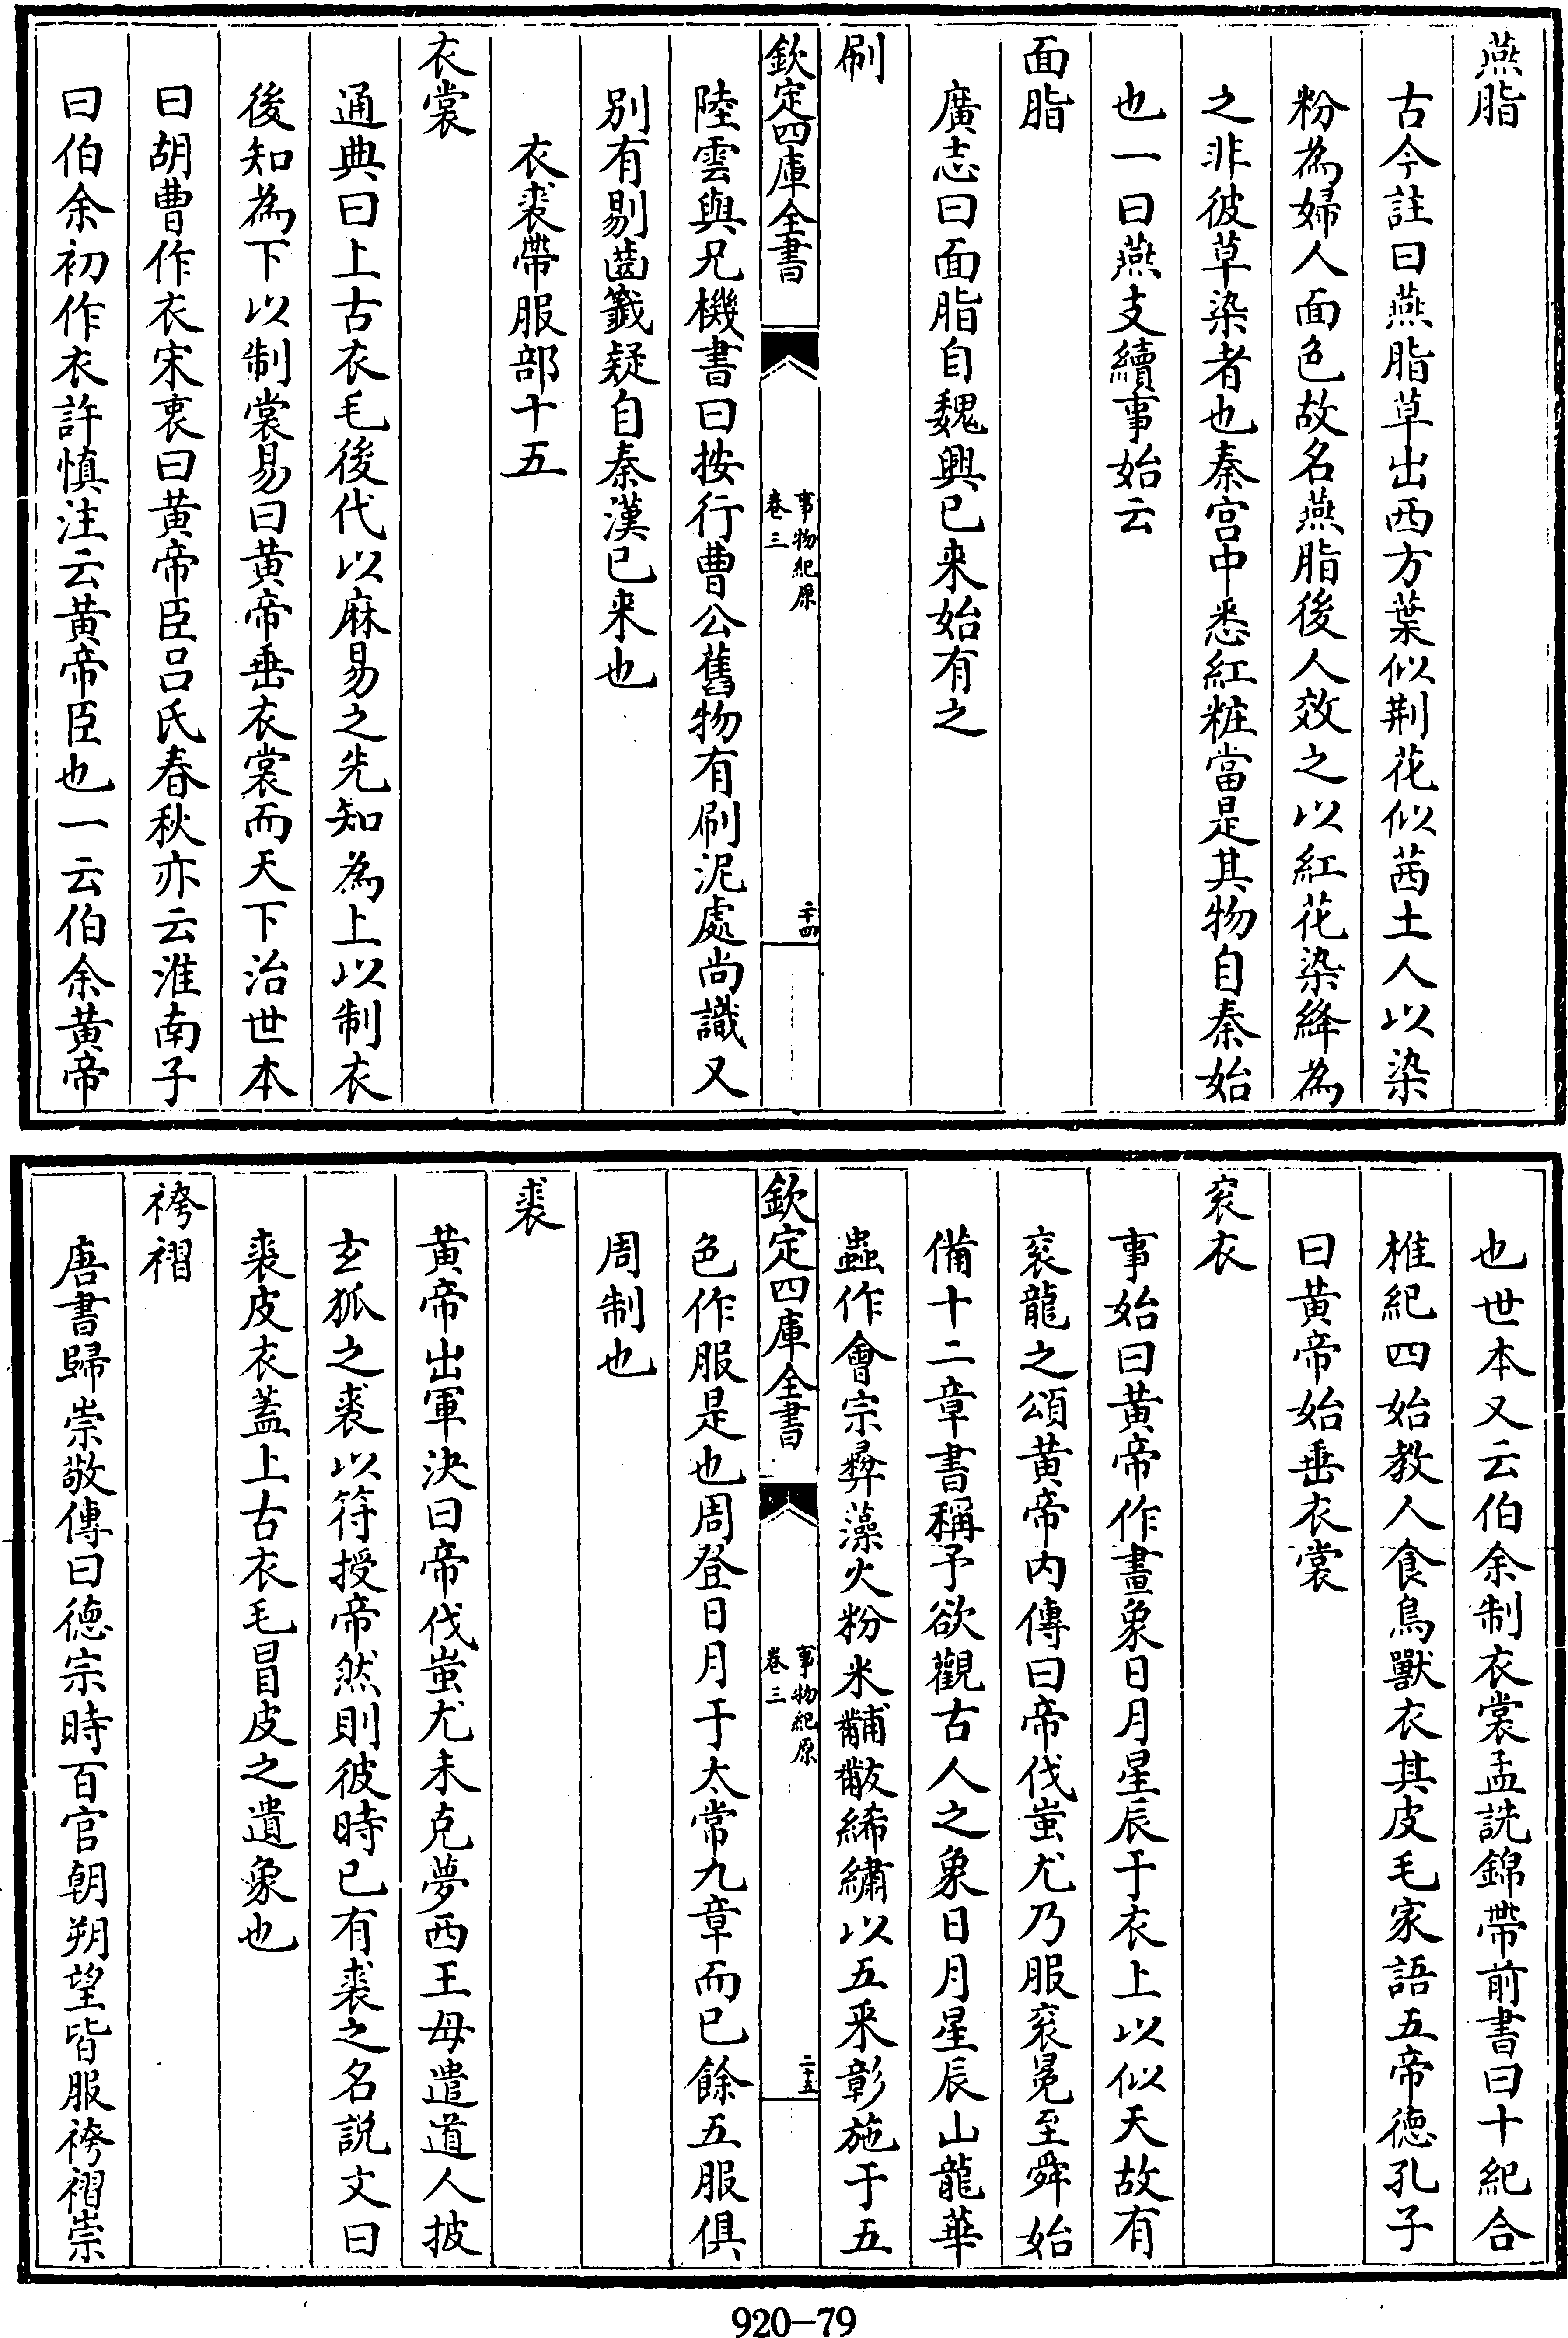 燕脂
古今註曰燕脂草出西方葉似荆花似茜土人以染
粉為婦人面色故名燕脂後人效之以紅花染絳為
之非彼草染者也秦宫中悉紅粧當是其物自秦始
也一曰燕支續事始云
面脂
廣志曰面脂自魏興已来始有之
刷
欽定四庫全書
事物紀原
卷三
二十四
陸雲與兄機書曰按行曹公舊物有刷泥處尚識又
别有剔齒籤疑自秦漢已来也
衣裘帶服部十五
衣裳
通典曰上古衣毛後代以麻易之先知為上以制衣
後知為下以制裳易曰黄帝垂衣裳而天下治世本
曰胡曹作衣宋衷曰黄帝臣吕氏春秋亦云淮南子
曰伯余初作衣許慎注云黄帝臣也一云伯余黄帝
也世本又云伯余制衣裳孟詵錦帶前書曰十紀合
椎紀四始教人食鳥獸衣其皮毛家語五帝徳孔子
曰黄帝始垂衣裳
衮衣
事始曰黄帝作畫象日月星辰于衣上以似天故有
衮龍之頌黄帝内傳曰帝伐蚩尤乃服衮冕至舜始
備十二章書稱予欲觀古人之象日月星辰山龍華
蟲作會宗彛藻火粉米黼黻絺繡以五采彰施于五
欽定四庫全書
事物紀原
卷三
二十五
色作服是也周登日月于太常九章而已餘五服俱
周制也
裘
黄帝出軍決曰帝伐蚩尤未克夢西王母遣道人披
玄狐之裘以符授帝然則彼時已有裘之名説文曰
裘皮衣蓋上古衣毛冒皮之遺象也
袴褶
唐書歸崇敬傳曰徳宗時百官朝朔望皆服袴褶崇
920-79